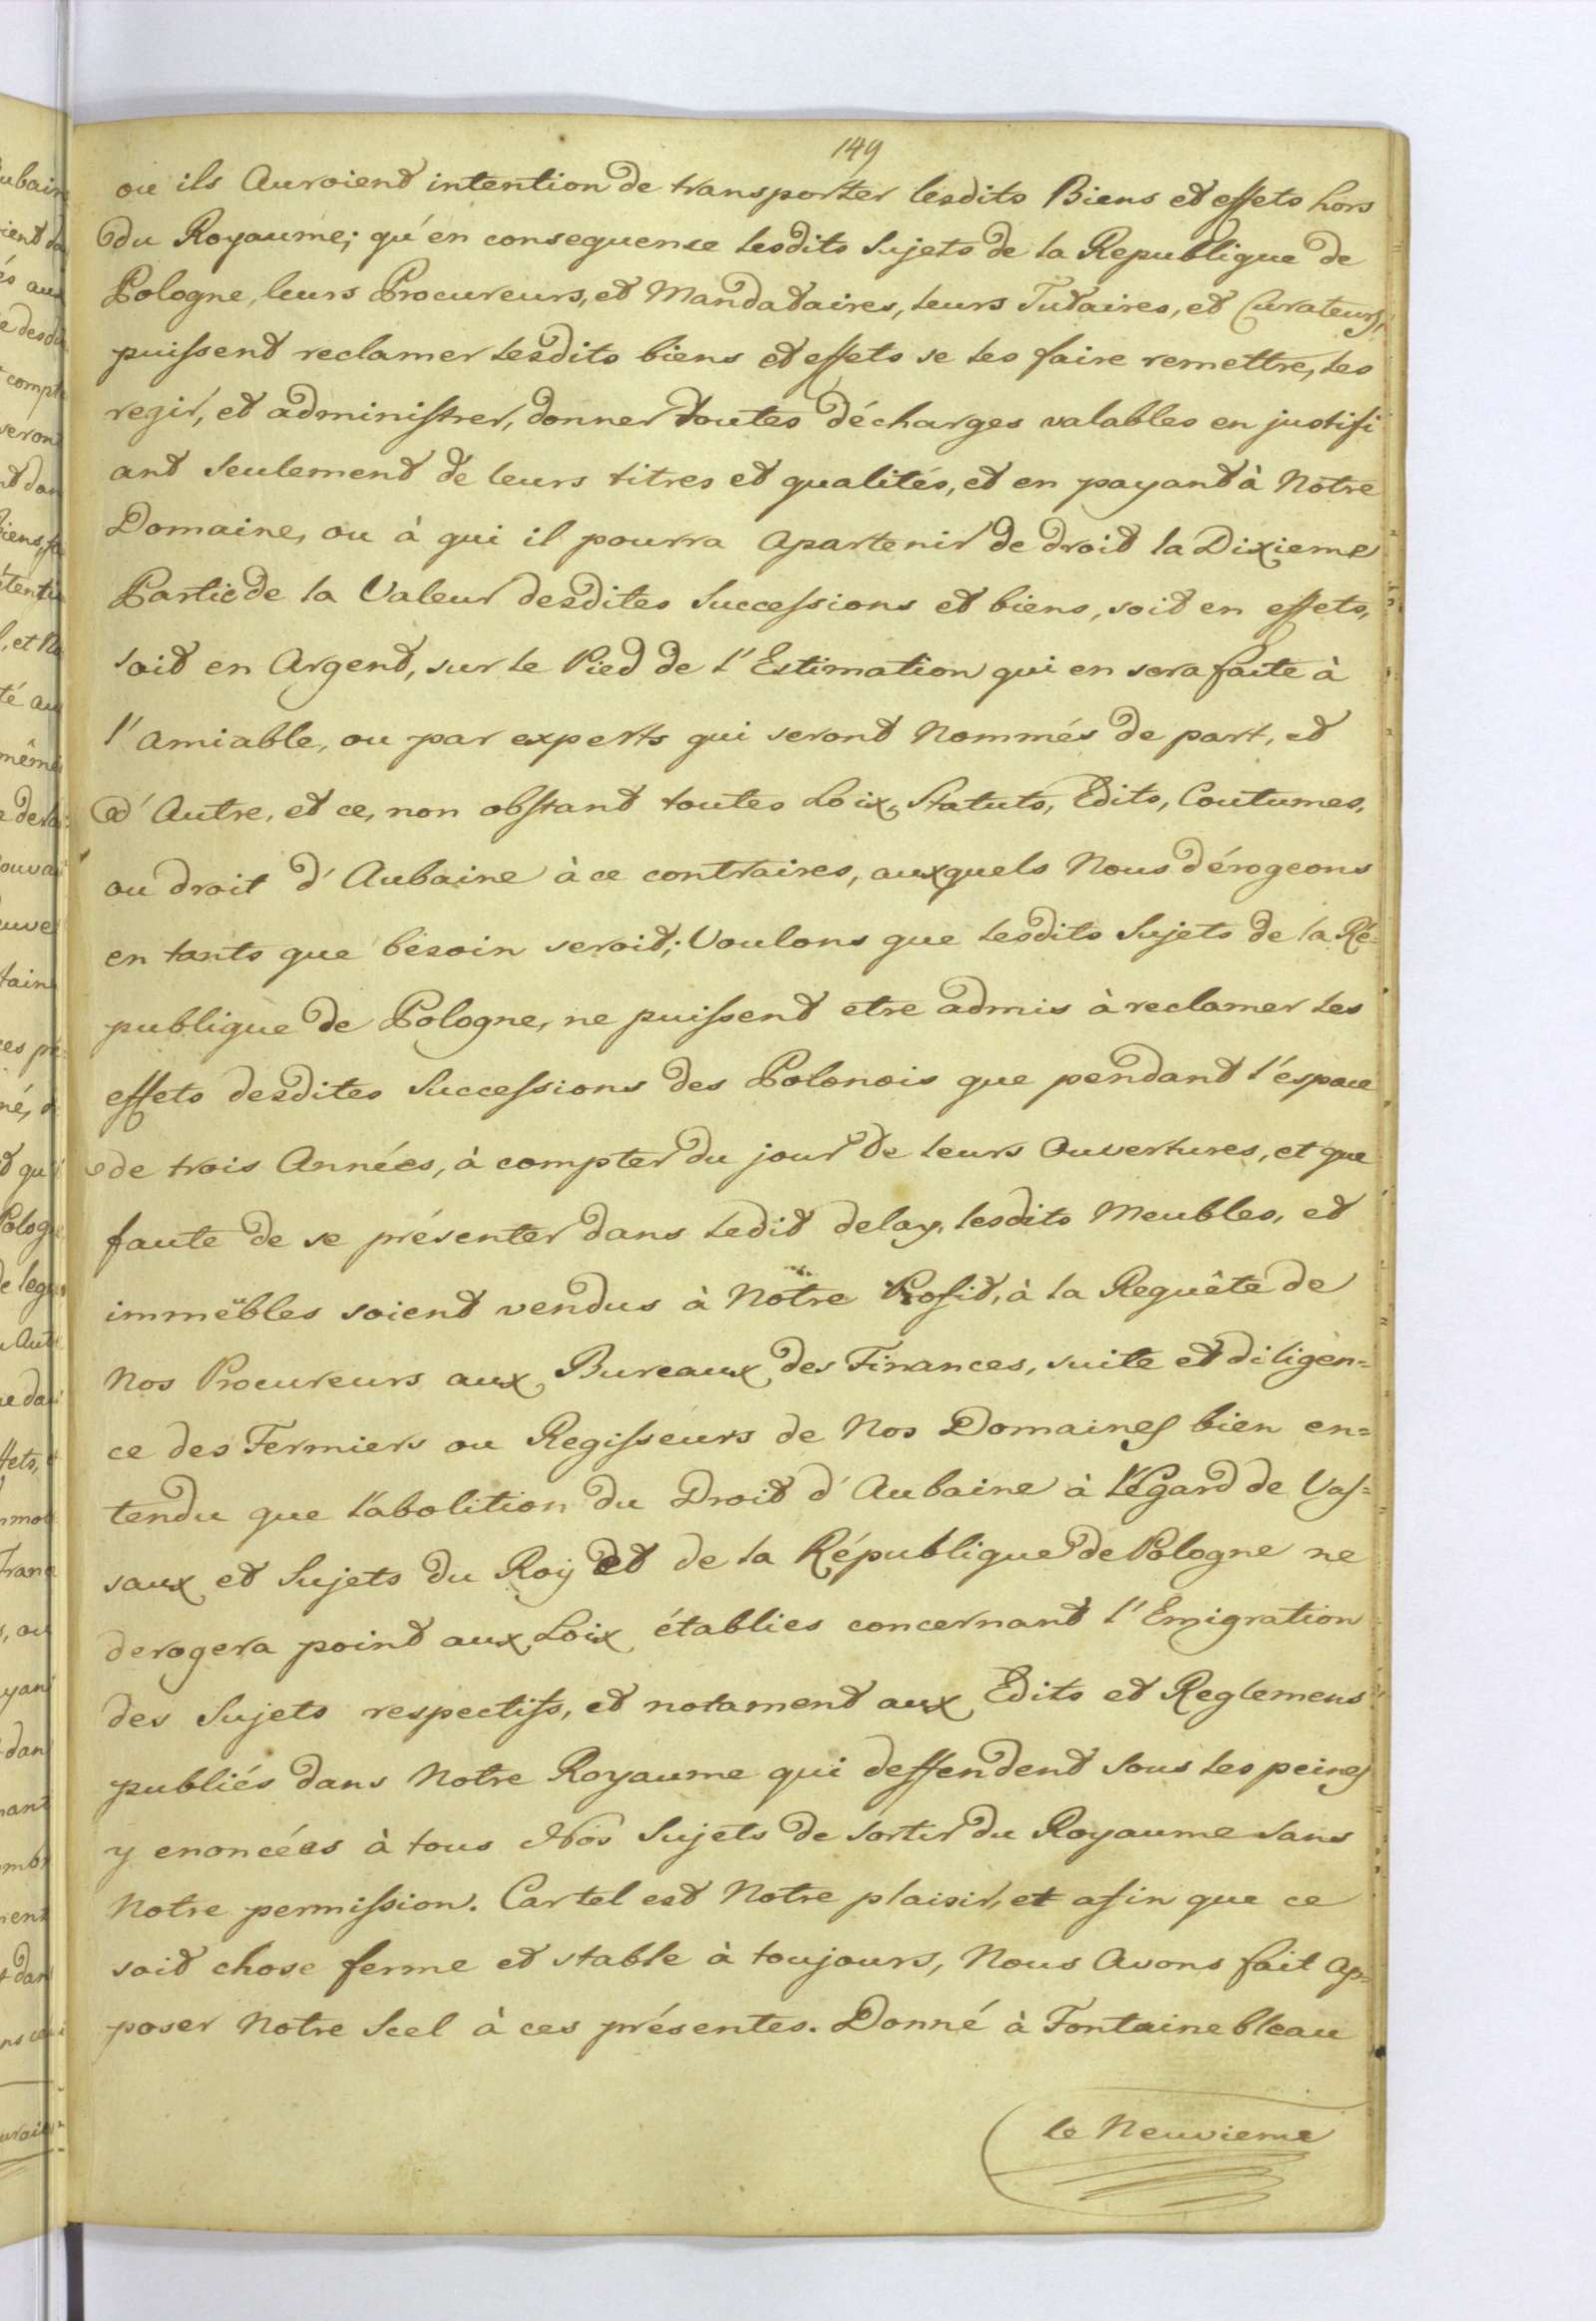 149
ou ils Auroient intention de transporter lesdits Biens et effets hors
du Royaume; qu'en consequense lesdits Sujets de la Republique de
Pologne, leurs Procureurs, et Mandataires, leurs Tutaires, et Curateurs,
puissent reclamer lesdits biens et effets se les faire remettre, les
regir, et administrer, donner toutes décharges valables en justifi
ant Seulement de leurs titres et qualités, et en payant à Notre
Domaine, ou à qui il pourra Apartenir de droit la Dixieme
Partie de la Valeur desdites Successions et biens, soit en effets,
soit en Argent, sur le Pied de l'Estimation qui en sera faite à
l'amiable, ou par experts qui seront Nommés de part, et
d'Autre, et ce, non obstant toutes Loix, Statuts, Edits, Coutumes,
ou droit d'Aubaine à ce contraires, auxquels Nous dérogeons
en tants que bésoin seroit; Voulons que lesdits Sujets de la Ré=
publique de Pologne, ne puissent etre admis à reclamer les
effets desdites Successions des Polonois que pendant l'espace
de trois Années, à compter du jour de leurs Ouvertures, et que
faute de se présenter dans ledit delay, lesdits Meubles, et
immeübles soient vendus à Notre Profit, à la Requête de
Nos Procureurs aux Bureaux des Finances, suite et diligen=
ce des Fermiers ou Regisseurs de Nos Domaines bien en=
tendu que l'abolition du Droit d'Aubaine à l'Egard de Vas=
saux et Sujets du Roy et de la République de Pologne ne
derogera point aux Loix établies concernant l'Emigration
des Sujets respectifs, et notament aux Edits et Reglemens
publiés dans Notre Royaume qui deffendent sous les peines
y enoncées à tous Nos Sujets de Sortir du Royaume sans
Notre permission. Car tel est Notre plaisir, et afin que ce
soit chose ferme et stable à toujours, Nous Avons fait Ap=
poser Notre Scel à ces présentes. Donné à Fontainebleau
le Neuvieme